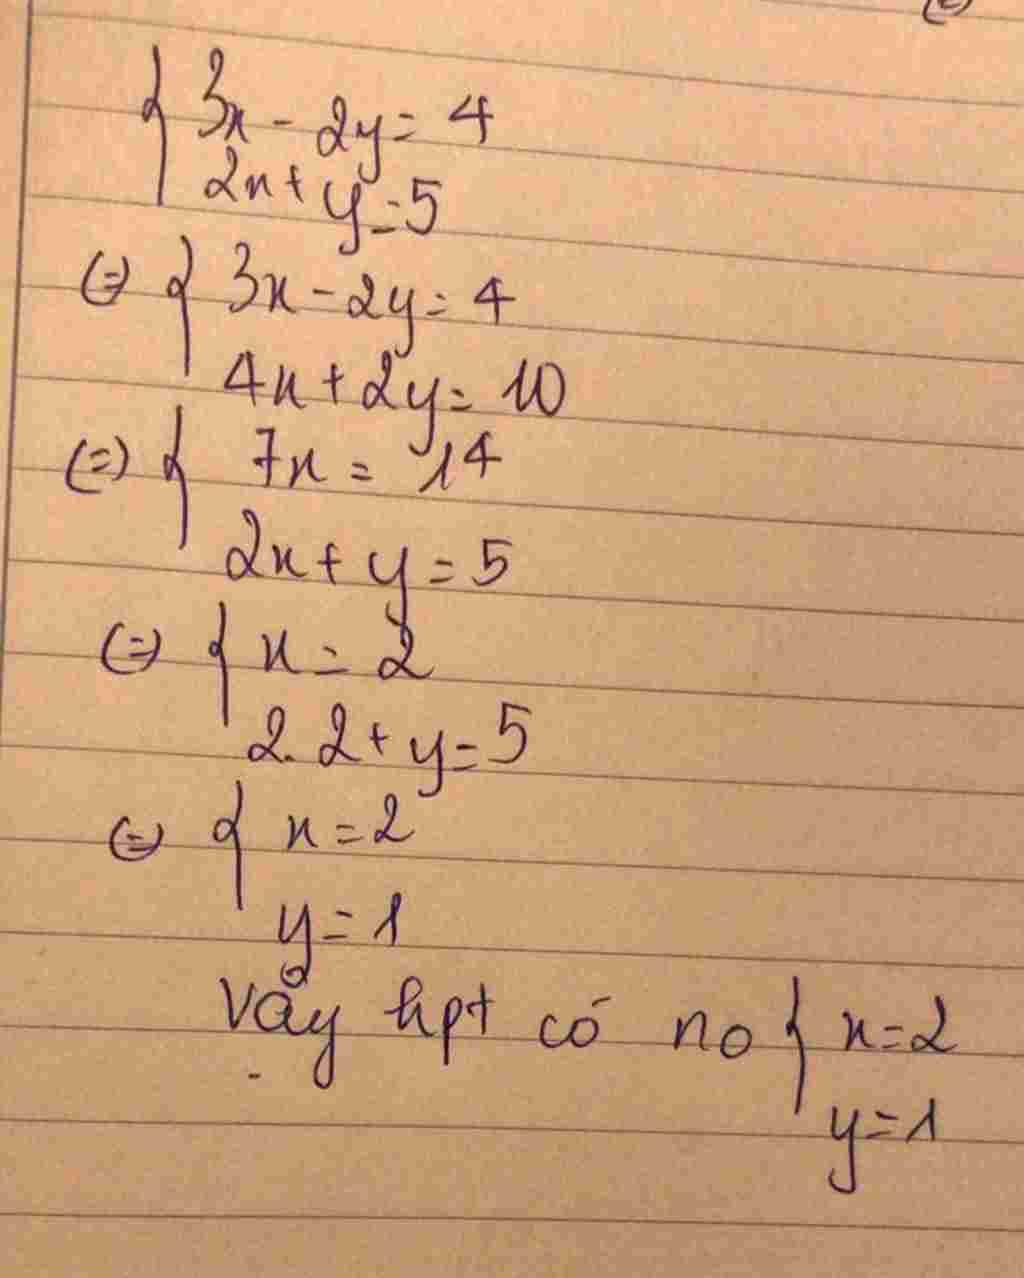 { 3x - 2y = 4
2x + y = 5
(=) { 3x - 2y = 4
4x + 2y = 10
(=) { 7x = 14
2x + y = 5
(=) { x = 2
2.2 + y = 5
(=) { x = 2
y = 1
Vậy hpt có no { x = 2
y = 1